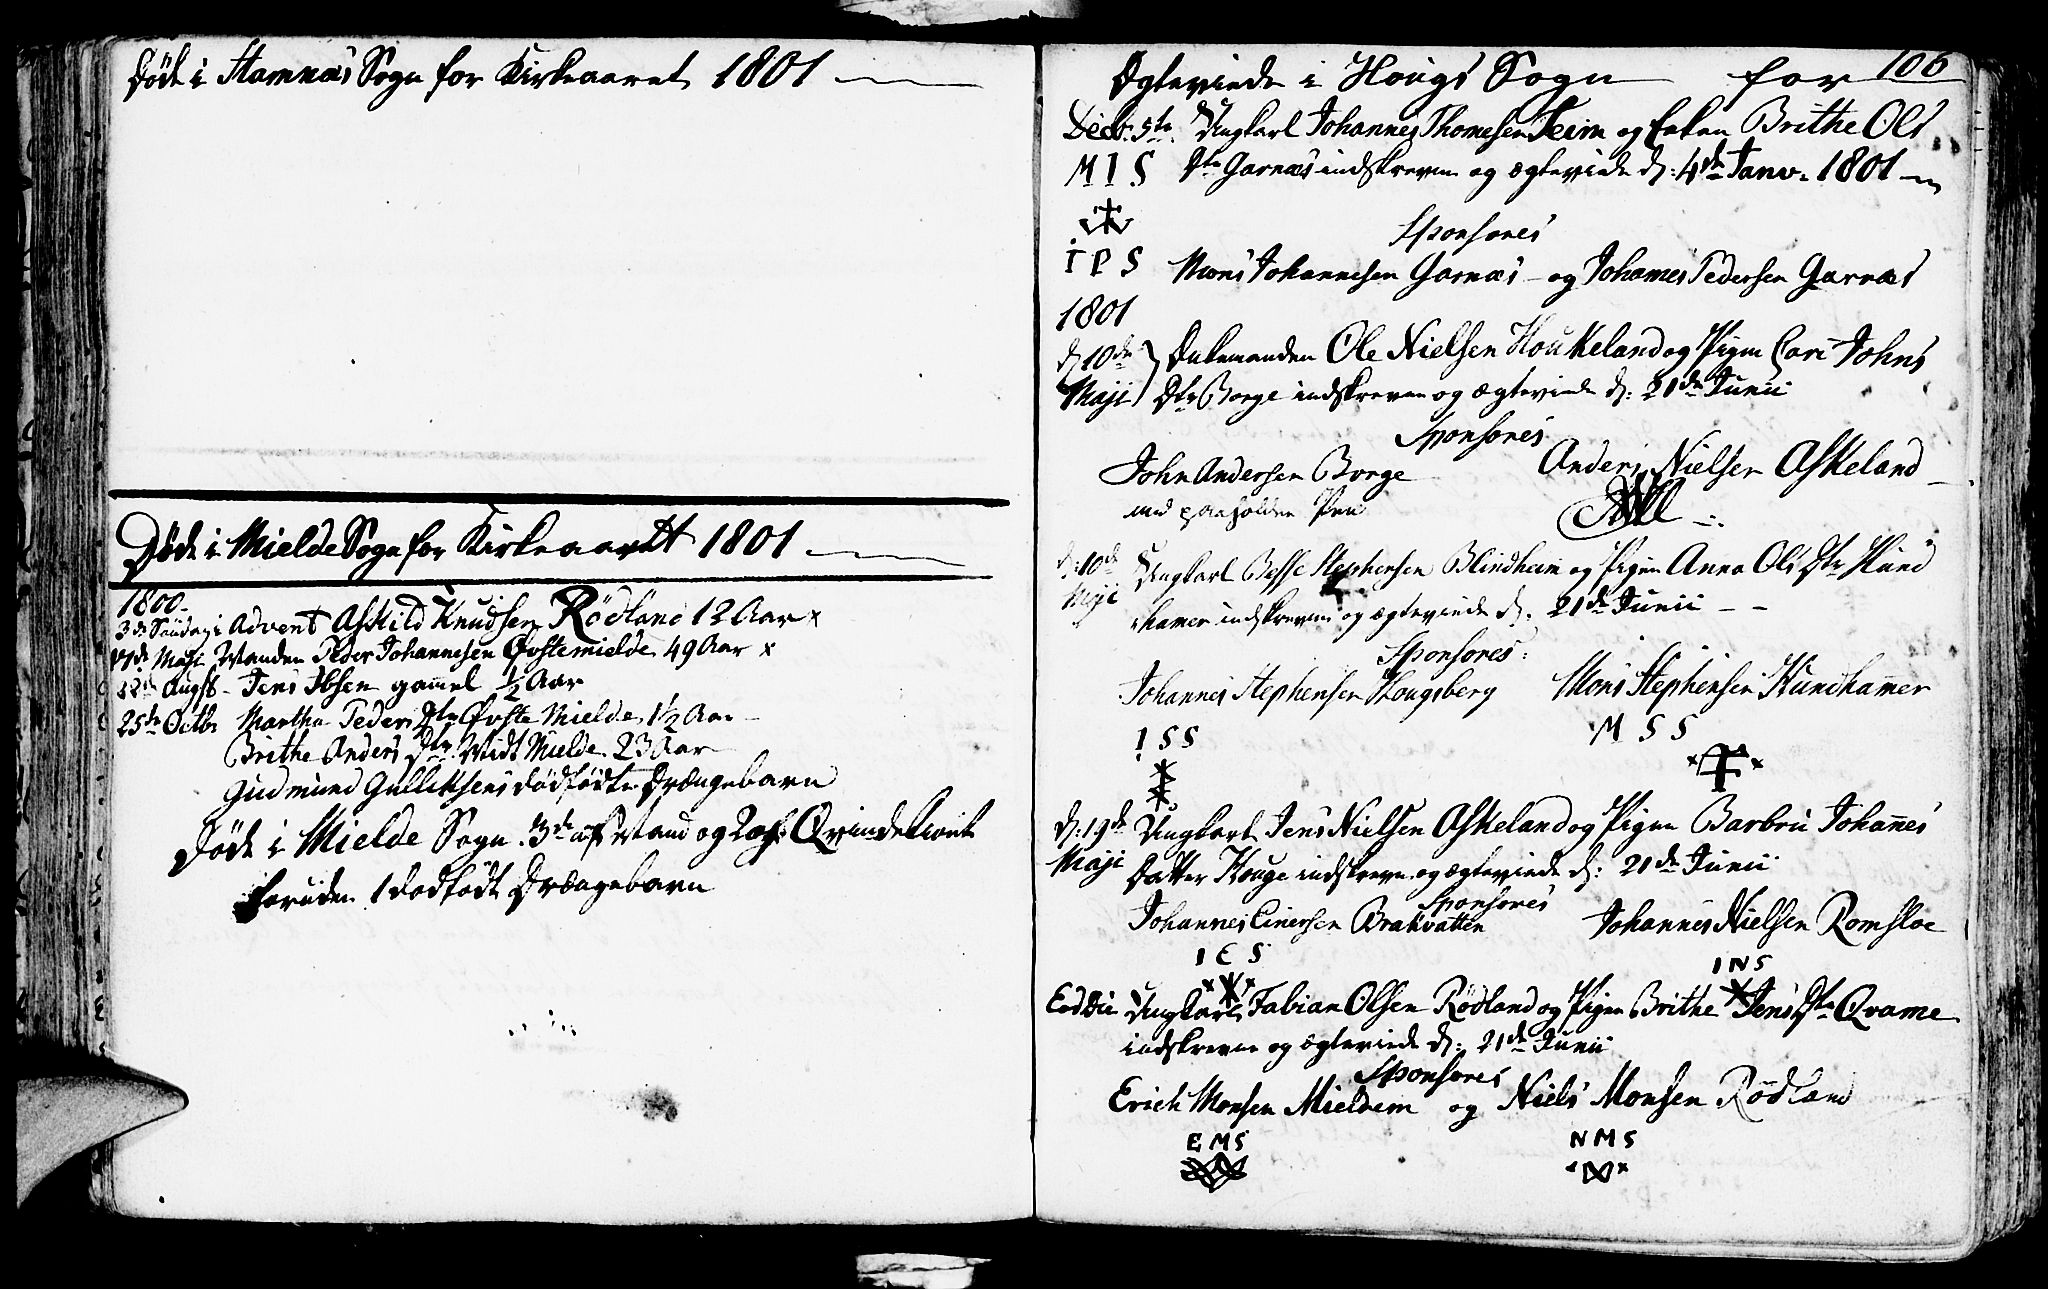 Døde i Stamnæs Sogn for Kirkeaaret 1801
Døde i Mielde Sogn for Kirkeaaret 1801
1800.
3de Søndag i Advent Askild Knudsen Rødland 12 Aar x
17de Maji Manden Peder Johannesen Øvstemielde 49 Aar x
22de Augst Jens Ibsen gamel 1/2 Aar
25de Octbr Martha Peders Dtr Øvste Mielde 1 1/2 Aar
Brithe Anders Dtr Midt Mielde 23 Aar
Gudmund Gulleksens dødfødte Drængebarn
Døde i Mielde Sogn 3de af Mand og 2 af Qvindekiøn
foruden 1 dødfødt Drængebarn
106
Ægteviede i Hougs Sogn for
Decbr 5te Ungkarl Johannes Thomesen Teim og Enken Brithe Ols
M I S Dtr Garnæs indskreven og ægteviede d: 4de Janv. 1801
Sponsores
I P S Mons Johannesen Garnæs og Johannes Pedersen Garnæs
1801
d 10de Enkemanden Ole Nielsen Houkeland og Pigen Cari Johns
Maji Dtr Borge indskreven og ægteviede d: 21de Junii
Sponsores
John Andersen Borge Anders Nielsen Askeland
med paaholden Pen
d: 10de Ungkarl Besse Stephensen Blindheim og Pigen Anna Ols Dtr Hund
Maji hamer indskreven og ægteviede d. 21de Junii
Sponsores:
Johannes Stephensen Hougsberg Mons Stephensen Hundhamer
I S S M S S
d: 19de Ungkarl Jens Nielsen Askeland og Pigen Barbru Johanes
Maji Datter Houge indskreven og ægteviede d: 21de Junii
Sponsores
Johannes Einersen Brakvatten Johannes Nielsen Romsloe
I E S I N S
Eod Die Ungkarl Fabian Olsen Rødland og Pigen Brithe Jens Dtr Qvame
indskreven og ægteviede d: 21de Junii
Sponsores
Erich Monsen Mieldem og Niels Monsen Rødland
E M S N M S